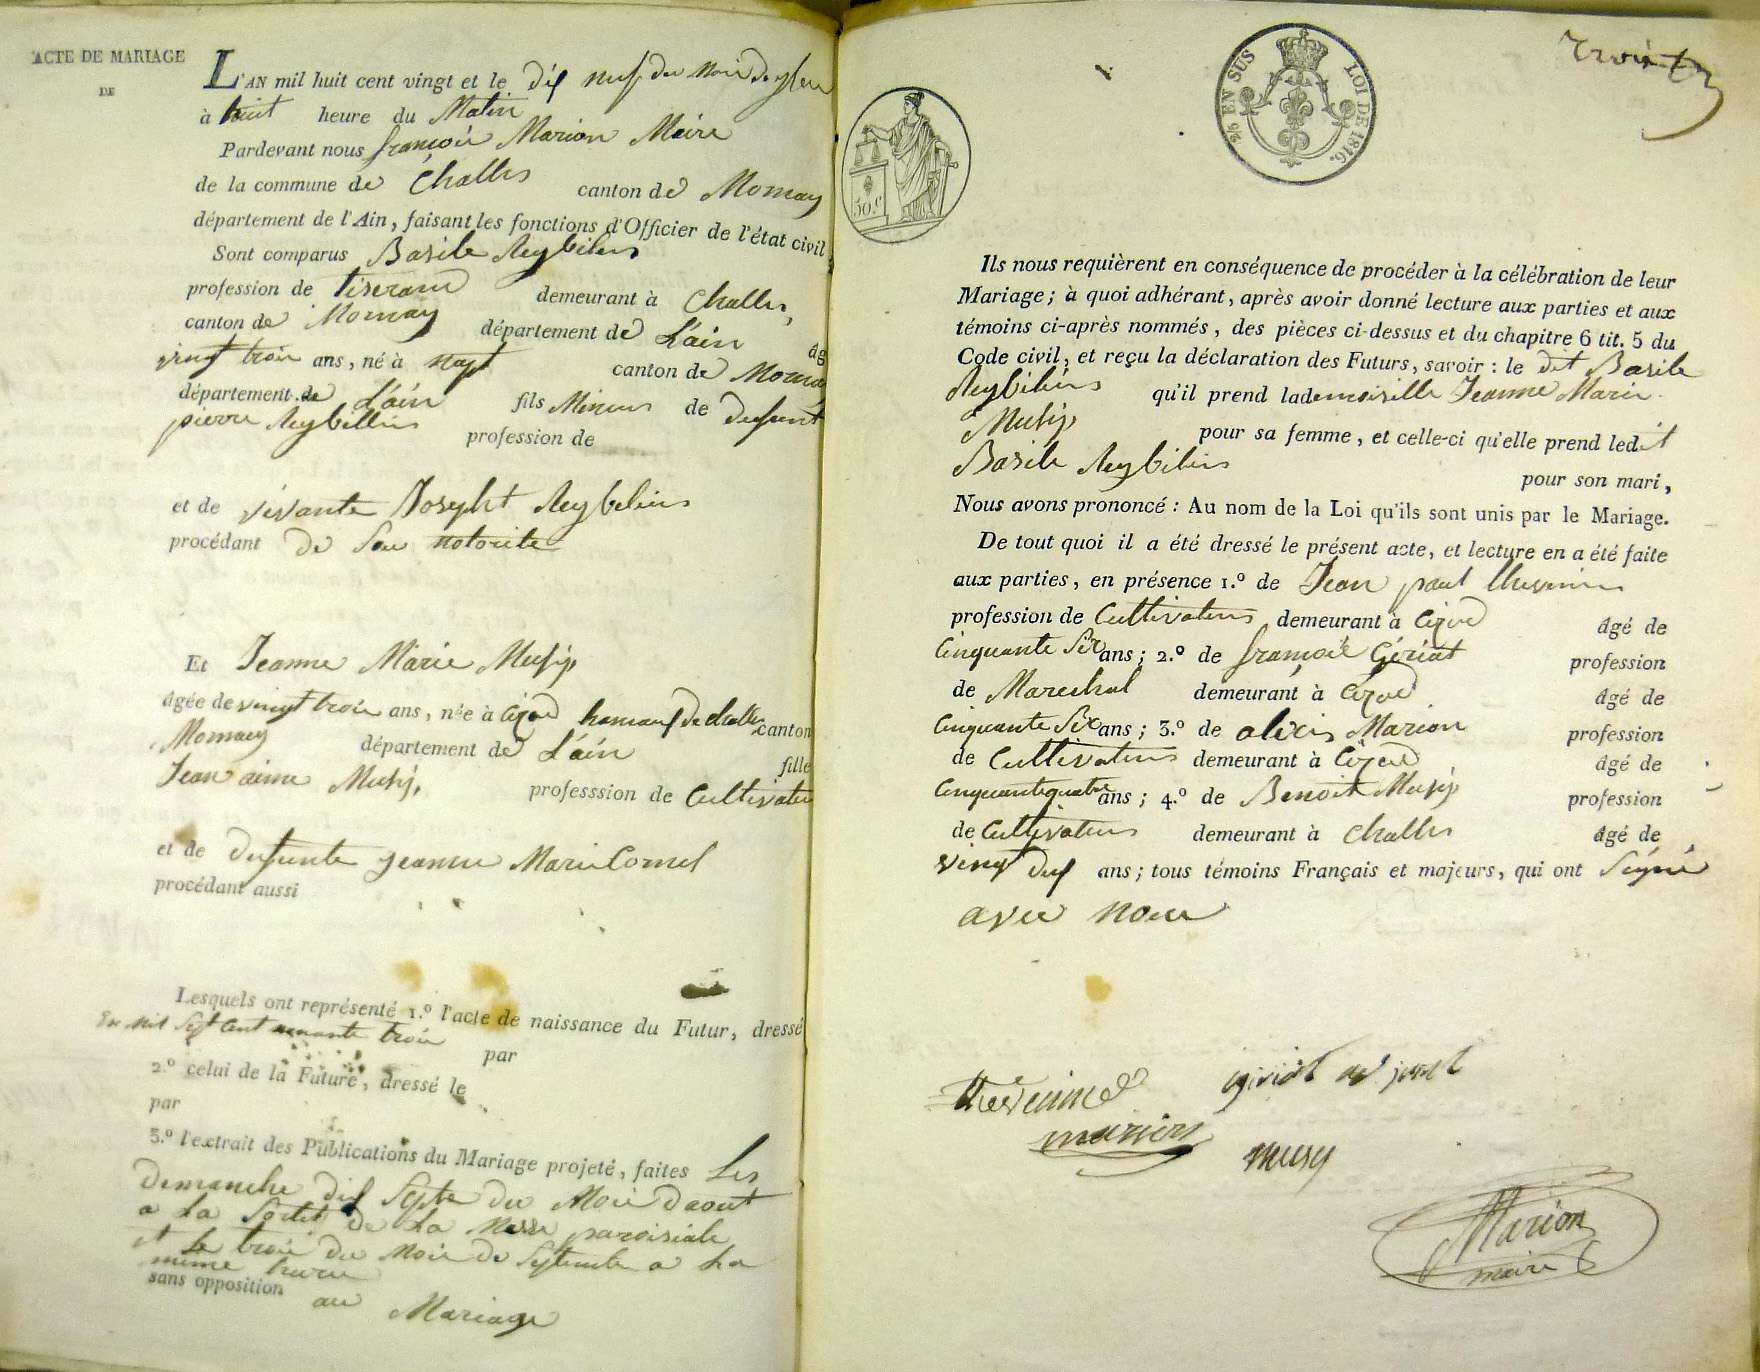 ACTE DE MARIAGE
DE
L'AN mil huit cent vingt et le dix neuf du mois de
à huit heure du Matin
Pardevant nous françois Marion Maire
de la commune de Challes canton de Mornay
département de l'Ain, faisant les fonctions d'Officier de l'état civil
Sont comparus Basile Reybilins
profession de tiserand demeurant à Challes,
canton de Mornay département de L'ain âg
vingt trois ans, né à napt canton de Morna
département de L'ain fils Mineur de defunt
pierre Reybellins profession de
et de vivante Josepht Reybelins
procédant de Son notorite
Et Jeanne Marie Musÿ
âgée de vingt trois ans, née à Cizod hameau De challes canton
Mornay département de L'ain fille
Jean aime Musy, professsion de Cultivateu
et de defunte jeanne Marie Cornel
procédant aussi
Lesquels ont représenté 1.º l'acte de naissance du Futur, dressé
En mil Sept Cent nonante trois par
2.º celui de la Future, dressé le
par
3.º l'extrait des Publications du Mariage projeté, faites Les
Demanche dix Septe du Mois d'aout
a La Sortit de La Messe paroisiale
et Le trois du Mois de Septembre a La
même heure
sans opposition au Mariage
30.c
2/6 EN SUS LOI DE 1816.
Ils nous requièrent en conséquence de procéder à la célébration de leur
Mariage; à quoi adhérant, après avoir donné lecture aux parties et aux
témoins ci-après nommés, des pièces ci-dessus et du chapitre 6 tit. 5 du
Code civil, et reçu la déclaration des Futurs, savoir: le dit Basile
Reybilins qu'il prend lademoiselle Jeanne Marie
Musÿ pour sa femme, et celle-ci qu'elle prend ledit
Basile Reybilins pour son mari,
Nous avons prononcé: Au nom de la Loi qu'ils sont unis par le Mariage.
De tout quoi il a été dressé le présent acte, et lecture en a été faite
aux parties, en présence 1.º de Jean paul
profession de Cultivateur demeurant à Cizod âgé de
Cinquante Six ans; 2.º de françois Gériat profession
de Marechal demeurant à Cizod âgé de
Cinquante Six ans; 3.º de alexis Marion profession
de Cultivateur demeurant à Cizod âgé de
Cinquantequatre ans; 4.º de Benoit Musÿ profession
de Cultivateur demeurant à Challes âgé de
vingt dix ans; tous témoins Français et majeurs, qui ont Signé
avec nous
thevenin
marion
musy
Marion
maire